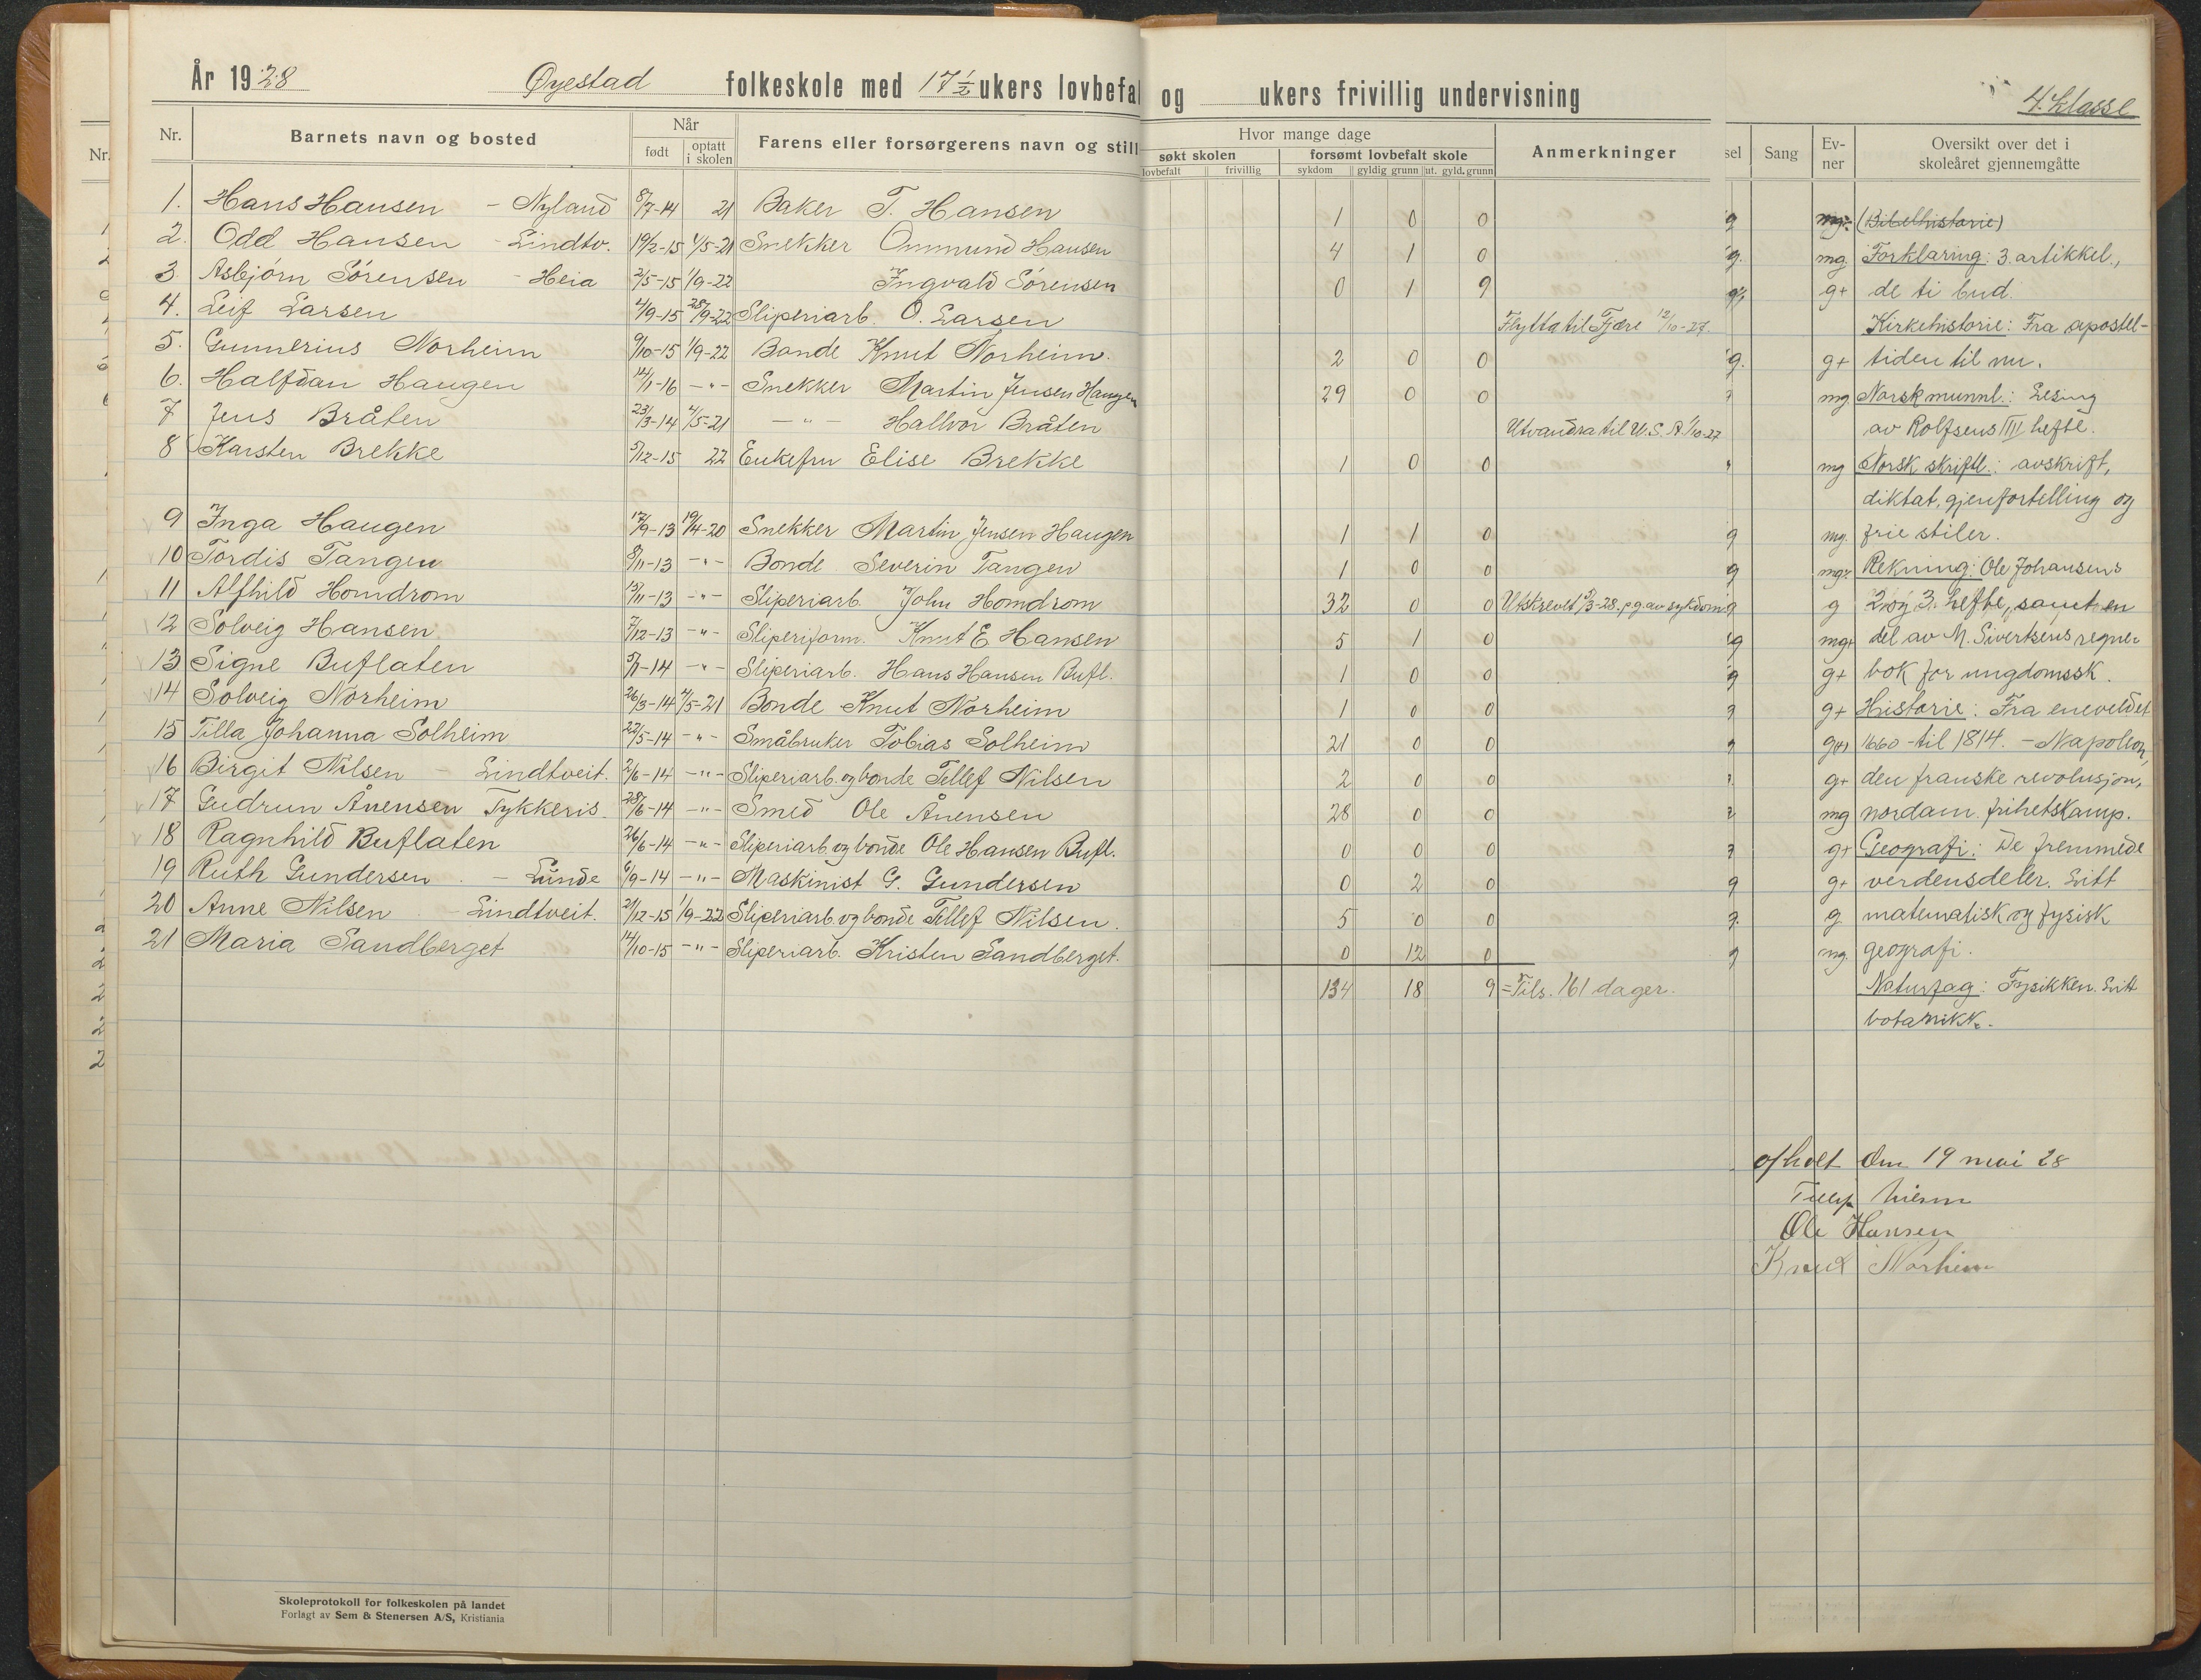 År 1928 Øyestad folkeskole med 17 1/2 ukers lovbefal og ukers frivillig undervisning
4. klasse
Nr. Barnets navn og bosted Når født optatt i skolen Farens eller forsørgerens navn og still Hvor mange dage søkt skolen lovbefalt frivillig forsømt lovbefalt skole sykdom gyldig grunn ut. gyld. grunn Anmerkninger sel Sang Ev-ner Oversikt over det i skoleåret gjennemgåtte
1. Hans Hansen - Nyland 8/7-14 21 Baker T. Hansen 1 0 0 g mg. (Bibelhistorie)
2. Odd Hansen - Lindtv. 19/2-15 4/5-21 Snekker Ommund Hansen 4 1 0 g. mg. Forklaring: 3. artikkel.,
3. Asbjørn Sørensen - Heia 2/5-15 1/9-22 Ingvald Sørensen 0 1 9 g+ de ti bud.
4. Leif Larsen 4/9-15 28/9-22 Sliperiarb. O. Larsen Flytta til Fjære 12/10-27. Kirkehistorie: Fra apostel-
5. Gunnerius Norheim 9/10-15 1/9-22 Bonde Knut Norheim. 2 0 0 g. g+ tiden til nu.
6. Halfdan Haugen 14/1-16 -"- Snekker Martin Jensen Haugen 29 0 0 mg Norsk munnl.: Lesing
7 Jens Bråten 23/3-14 4/5-21 -"- Hallvor Bråten Utvandra til U.S.A. 1/10-27 av Rolfsens III hefte.
8 Karsten Brekke 5/12-15 22 Enkefru Elise Brekke 1 0 0 mg Norsk skriftl.: avskrift,
diktat, gjenfortelling og
9 Inga Haugen 17/9-13 19/4-20 Snekker Martin Jensen Haugen 1 1 0 g mg. frie stiler.
10 Tordis Tangen 8/11-13 -"- Bonde Severin Tangen 1 0 0 g mg. Rekning: Ole Johansens
11 Alfhild Homdrom 15/11-13 -"- Sliperiarb. John Homdrom 32 0 0 Utskrevet 5/3-28. p.g.av sykdom g g 2. og 3. hefte, samt en
12 Solveig Hansen 7/12-13 -"- Sliperiform. Knut E Hansen 5 1 0 g mg+ del av M. Sivertsens regne-
13 Signe Buflaten 5/1-14 -"- Sliperiarb. Hans Hansen Bufl. 1 0 0 g g+ bok for ungdomssk.
14 Solveig Norheim 26/3-14 4/5-21 Bonde Knut Norheim 1 0 0 g g+ Historie: Fra eneveldet
15 Tilla Johanna Solheim 22/5-14 -"- Småbruker Tobias Solheim 21 0 0 g(+) 1660 - til 1814. - Napoleon,
16 Birgit Nilsen - Lindtveit. 2/6-14 -"- Sliperiarb. og bonde Tellef Nilsen 2 0 0 g+ den franske revolusjon,
17 Gudrun Ånensen Tykkeris. 28/6-14 -"- Smed Ole Ånensen 28 0 0 mg nordam. frihetskamp.
18 Ragnhild Buflaten 26/6-14 -"- Sliperiarb og bonde Ole Hansen Bufl. 0 0 0 g+ Geografi: De fremmede
19 Ruth Gundersen - Lunde 6/9-14 -"- Maskinist G. Gundersen 0 2 0 g g+ verdensdeler. Litt
20 Anne Nilsen - Lindtveit. 21/12-15 1/9-22 Sliperiarb. og bonde Tellef Nilsen. 5 0 0 g. g matematisk og fysisk
21 Maria Sandberget 14/10-15 -"- Sliperiarb. Kristen Sandberget. 0 12 0 g mg. geografi.
134 18 9 = Tils. 161 dager. Naturfag: Fysikken. Litt
botanikk.
ofholt den 19 mai 28
Ole Hansen
Knut Norheim
Skoleprotokoll for folkeskolen på landet
Forlagt av Sem & Stenersen A/S, Kristiania